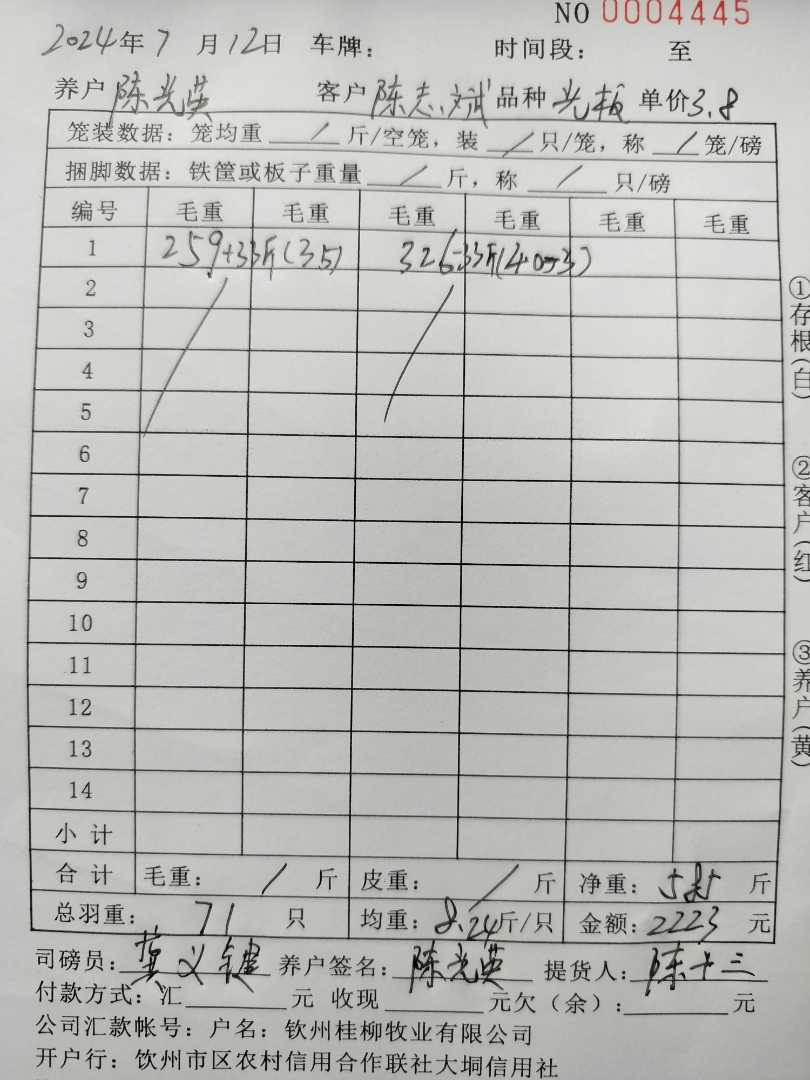 NO 0004445
2024年7月12日 车牌： 时间段： 至
养户 陈光英 客户 陈志斌 品种 光板 单价3.8
笼装数据：笼均重 / 斤/空笼，装 / 只/笼，称 / 笼/磅
捆脚数据：铁筐或板子重量 / 斤，称 / 只/磅
编号 毛重 毛重 毛重 毛重 毛重 毛重
1 259+33斤(35) 326-33斤
2
3
4
5
6
7
8
9
10
11
12
13
14
小计
合计 毛重： / 斤 皮重： / 斤 净重： 585 斤
总羽重： 71 只 均重：8.24斤/只 金额：2223 元
司磅员： 义键 养户签名：陈光英 提货人：陈十三
付款方式：汇 元 收现 元欠（余）： 元
公司汇款帐号：户名：钦州桂柳牧业有限公司
开户行：饮州市区农村信用合作联社大垌信用社
①存根(白)
②客户(红)
③养户(黄)